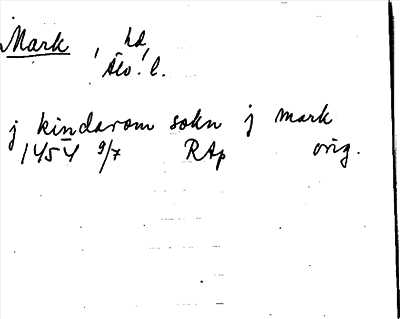 Mark, hd,
Älv. l.
j kindarom sokn j mark
1454 9/7 RAp orig.